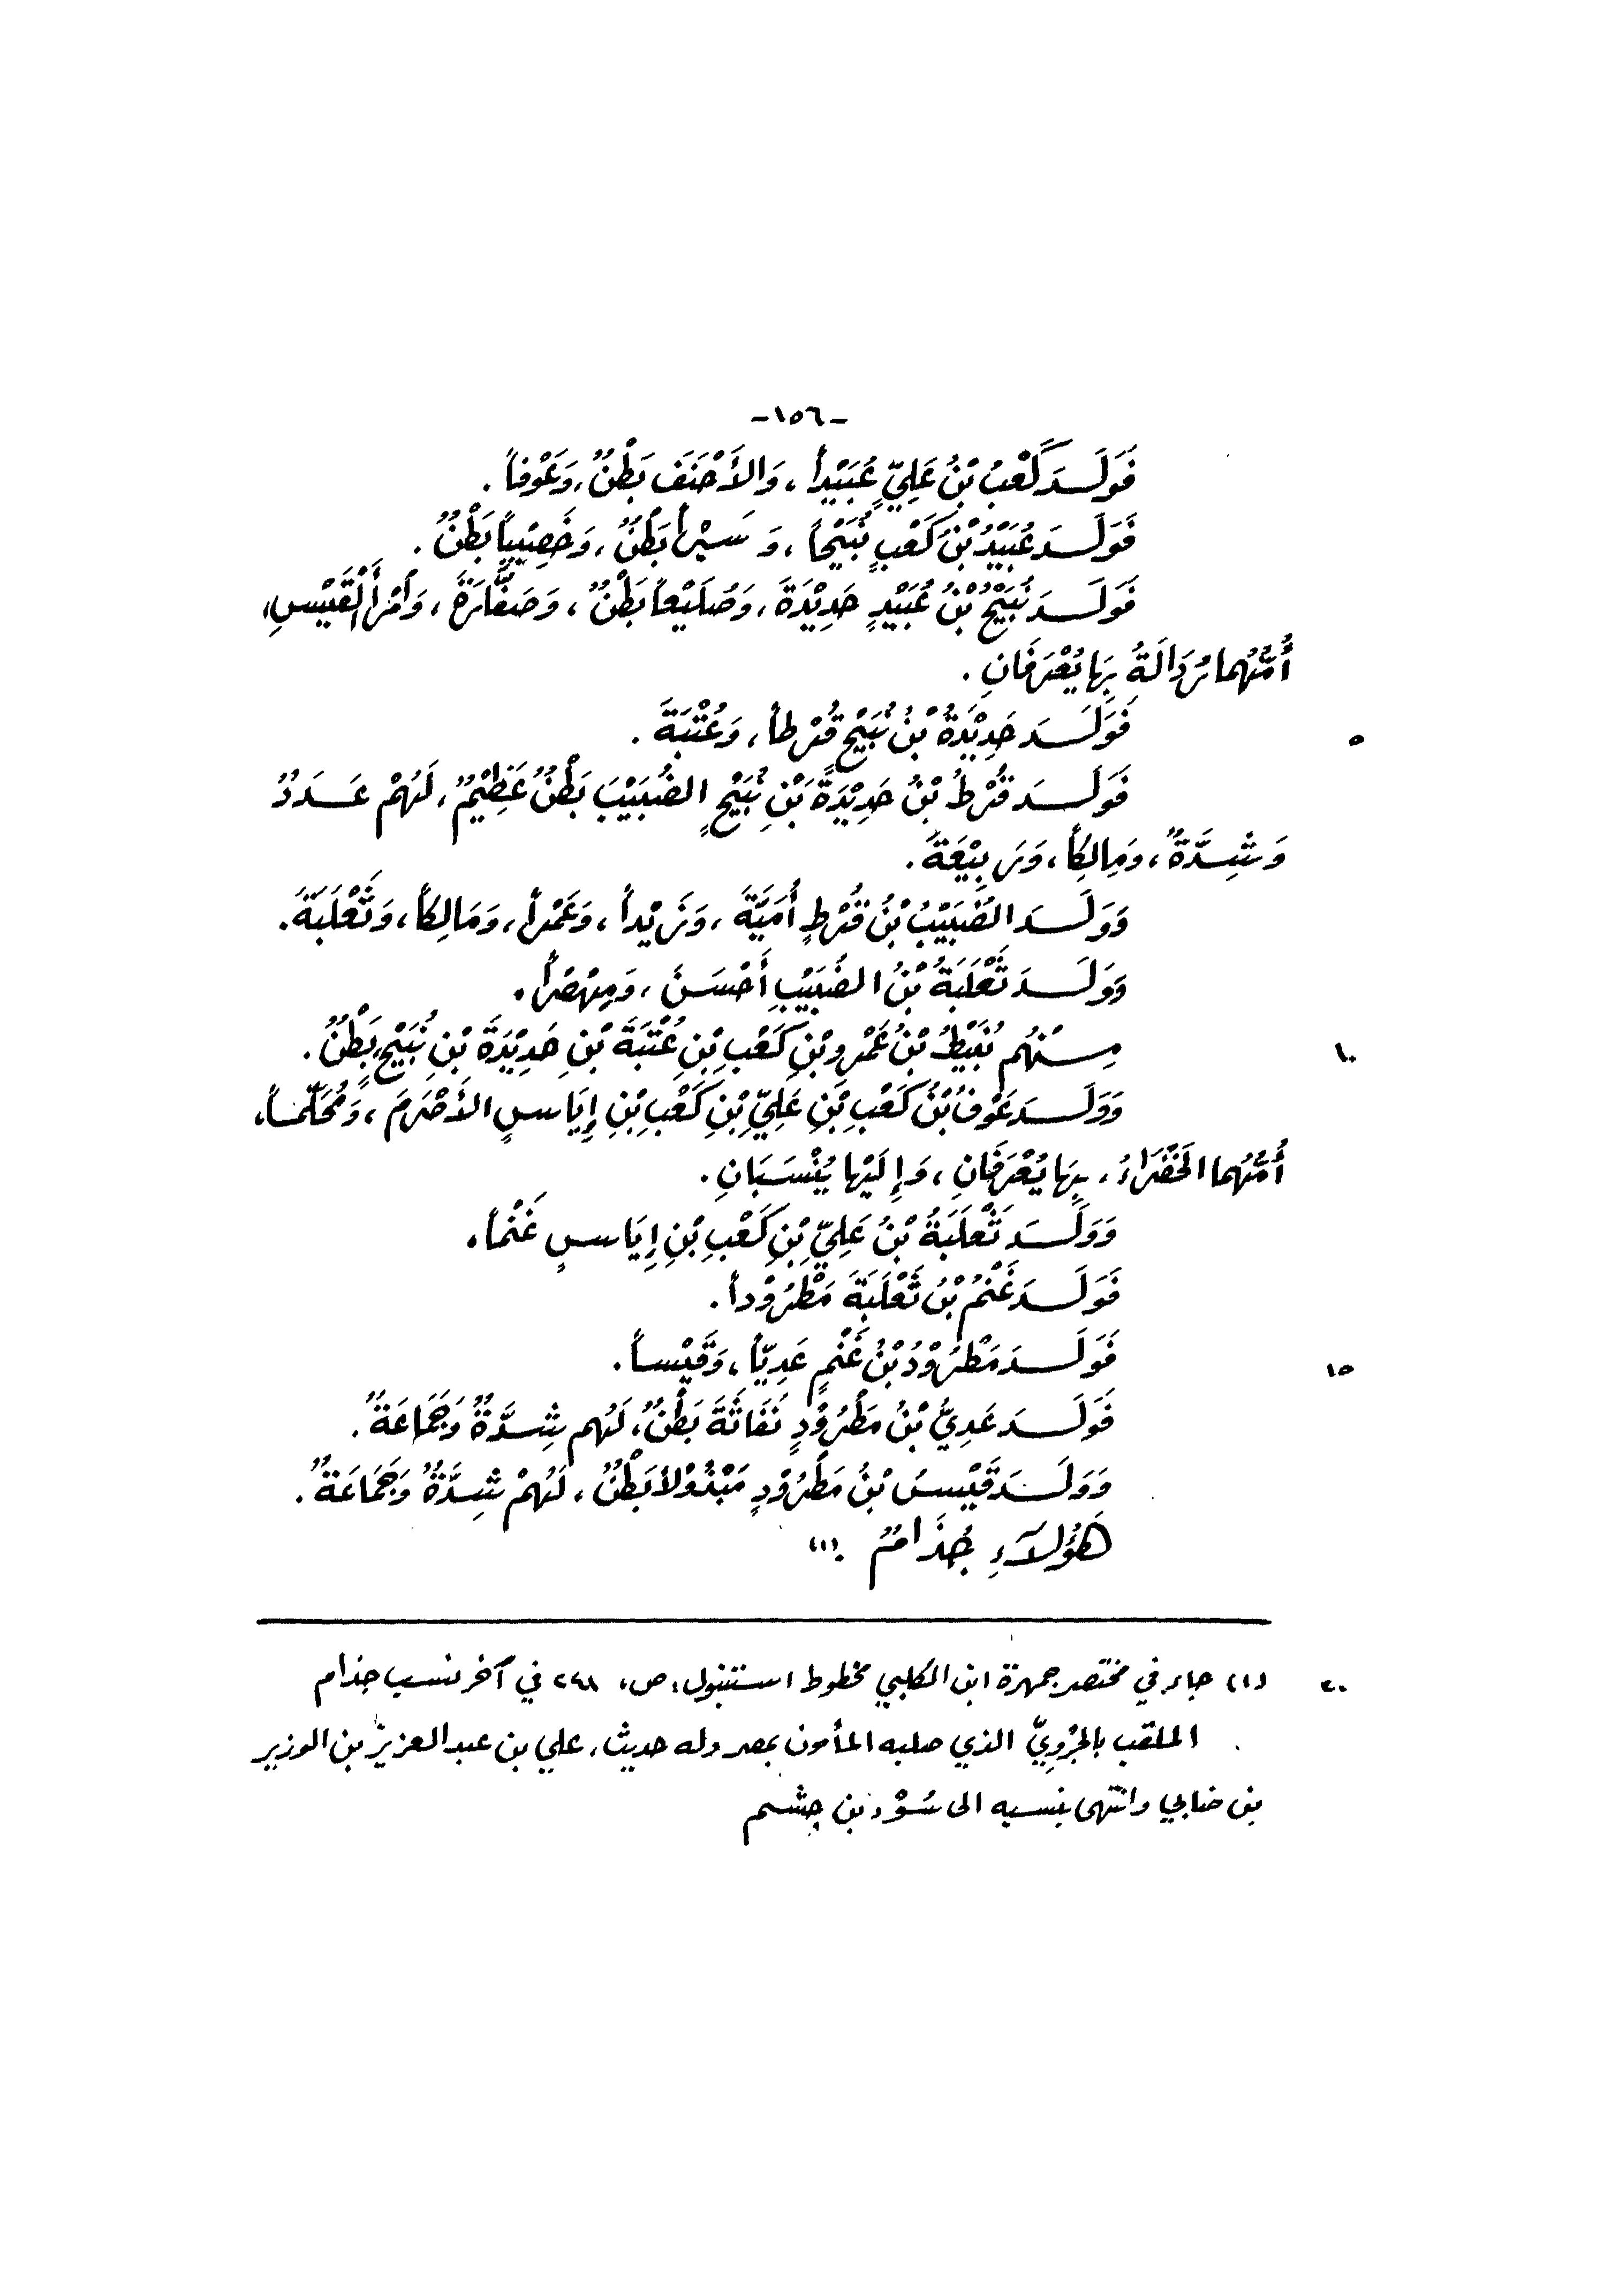 -١٥٦-
فَوَلَـدَ كَعْبُ بْنُ عَلِيٍّ عُبَيْداً، وَالأَحْنَفَ بَطْنٌ، وَعَوْفاً.
فَوَلَـدَ عُبَيْدُ بْنُ كَعْبٍ نُبَيْحاً، وَسَيْراً بَطْنٌ، وَخَصِيْباً بَطْنٌ.
فَوَلَـدَ نُبَيْحُ بْنُ عُبَيْدٍ حَدِيْدَةَ، وَصُلَيْعاً بَطْنٌ، وَصَفَّارَةَ، وَأمْرَأَ الْقَيْسِ،
أُمُّهُما رُدَالَةُ بِهَا يُعْرَفَانِ.
٥
فَوَلَـدَ حَدِيْدَةُ بْنُ نُبَيْحٍ قُرْطاً، وَعُتْبَةَ.
فَوَلَـدَ قُرْطُ بْنُ حَدِيْدَةَ بْنِ نُبَيْحٍ الضُّبَيْبَ بَطْنٌ عَظِيْمٌ، لَهُمْ عَـدَدٌ
وَشِـدَّةٌ، وَمَالِكاً، وَرَبِيْعَةَ.
وَوَلَـدَ الضُّبَيْبُ بْنُ قُرْطٍ أُمَيَّةَ، وَزَيْداً، وَعَمْراً، وَمَالِكاً، وَثَعْلَبَةَ.
وَوَلَـدَ ثَعْلَبَةُ بْنُ الضُّبَيْبِ أَحْسَنَ، وَمِهْصَراً.
١٠
مِـنْهُم نُبَيْطُ بْنُ عَمْرِو بْنِ كَعْبِ بْنِ عُتْبَةَ بْنِ حَدِيْدَةَ بْنِ نُبَيْحٍ، بَطْنٌ.
وَوَلَـدَ عَوْفُ بْنُ كَعْبِ بْنِ عَلِيِّ بْنِ كَعْبِ بْنِ إِيَاسٍ الأَصْرَمَ، وَمُحَلِّماً،
أُمُّهُما الخَضْرَاءُ، بِهَا يُعْرَفَانِ، وَإِلَيْها يُنْسَبَانِ.
وَوَلَـدَ ثَعْلَبَةُ بْنُ عَلِيِّ بْنِ كَعْبِ بْنِ إِيَاسٍ غَنْماً.
فَوَلَـدَ غَنْمُ بْنُ ثَعْلَبَةَ مَطْرُوْداً.
١٥
فَوَلَـدَ مَطْرُوْدُ بْنُ غَنْمٍ عَدِيّاً، وَقَيْساً.
فَوَلَـدَ عَدِيُّ بْنُ مَطْرُوْدٍ نَفَاثَةَ بَطْنٌ، لَهُم شِـدَّةٌ وَجَمَاعَةٌ.
وَوَلَـدَ قَيْسُ بْنُ مَطْرُوْدٍ مَبْذُوْلاً بَطْنٌ، لَهُمْ شِدَّةٌ وَجَمَاعَةٌ.
هَؤُلاَءِ جُذَامٌ .(١)
٢٠
(١) جاء في مختصر جمهرة ابن الكلبي مخطوط استنبول، ص، ٢٤٨ في آخر نسب جذام
الملقب بالجَرَوِيّ الذي صلبه المأمون بمصر وله حديث، علي بن عبد العزيز بن الوزير
بن ضابي وانتهى بنسبه الى سُوْد بن جشم